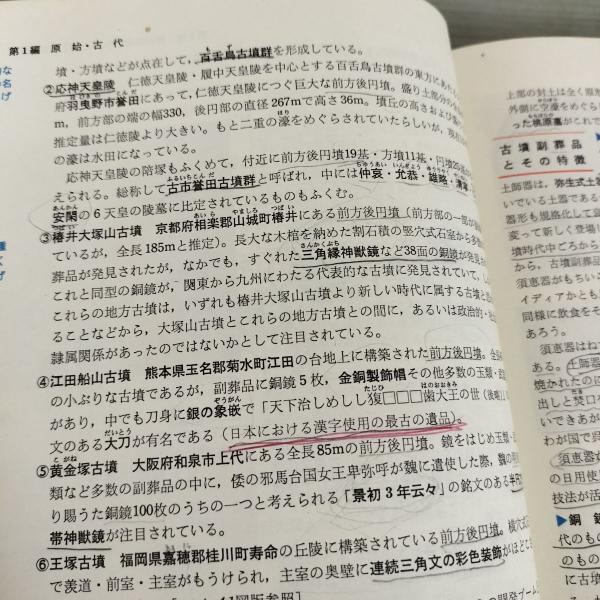 第1編 原始・古代
墳・方墳などが点在して，百舌鳥古墳群を形成している。
②応神天皇陵 仁徳天皇陵・履中天皇陵を中心とする百舌鳥古墳群の東方にあた
府羽曳野市誉田にあって，仁徳天皇陵につぐ巨大な前方後円墳。盛り土部分の
m，前方部の端の幅330，後円部の直径267mで高さ36m。墳丘の高さおよび
推定量は仁徳陵より大きい。もと二重の濠をめぐらされていたらしいが，現在
の濠は水田になっている。
応神天皇陵の陪塚もふくめて，付近に前方後円墳19基・方墳11基・円墳
えられる。総称して古市誉田古墳群と呼ばれ，中には仲哀・允恭・雄略・清寧
安閑の6天皇の陵墓に比定されているものもふくむ。
③椿井大塚山古墳 京都府相楽郡山城町椿井にある前方後円墳（前方部の一部が
ているが，全長185mと推定）。長大な木棺を納めた割石積の竪穴式石室から多
葬品が発見されたが，なかでも，すぐれた三角縁神獣鏡など38面の銅鏡が
これと同型の銅鏡が，関東から九州にわたる代表的な古墳に発見されていて，し
これらの地方古墳は，いずれも椿井大塚山古墳より新しい時代に属する古墳と
ることなどから，大塚山古墳とこれらの地方古墳との間に，あるいは政治的・社
隷属関係があったのではないかとして注目されている。
④江田船山古墳 熊本県玉名郡菊水町江田の台地上に構築された前方後円墳。全長
の小ぶりな古墳であるが，副葬品に銅鏡5枚，金銅製飾帽その他多数の玉類・
があり，中でも刀身に銀の象嵌で「天下治しめしし□□□歯大王の世（後略）」の
文のある大刀が有名である（日本における漢字使用の最古の遺品）。
⑤黄金塚古墳 大阪府和泉市上代にある全長85mの前方後円墳。鏡をはじめ玉類・
類など多数の副葬品の中に，倭の邪馬台国女王卑弥呼が魏に遣使した際，魏の
り賜うた銅鏡100枚のうちの一つと考えられる「景初3年云々」の銘文のある半円
帯神獣鏡が注目されている。
⑥王塚古墳 福岡県嘉穂郡桂川町寿命の丘陵に構築されている前方後円墳。横穴式
で羨道・前室・主室がもうけられ，主室の奥壁に連続三角文の彩色装飾がほどこ
図版参照］
の開発ブーム
上部の封土は全く原
外側に空濠をめぐら
った桃原墓がこれで
古墳副葬品
とその特徴
土師器は，弥生式土
いている土器である
器形も規格化して
変って新しく登場
墳時代中ごろから
から，古墳副葬品
須恵器がもちい
イディアかとも
同様に飲食をそ
あろう。
須恵器はね
ある。土師器
焼かれたのに
出しと焚口
いできあが
わが国で
須恵
の日用使
技法が活
▶銅
のもの
ものの
に古墳